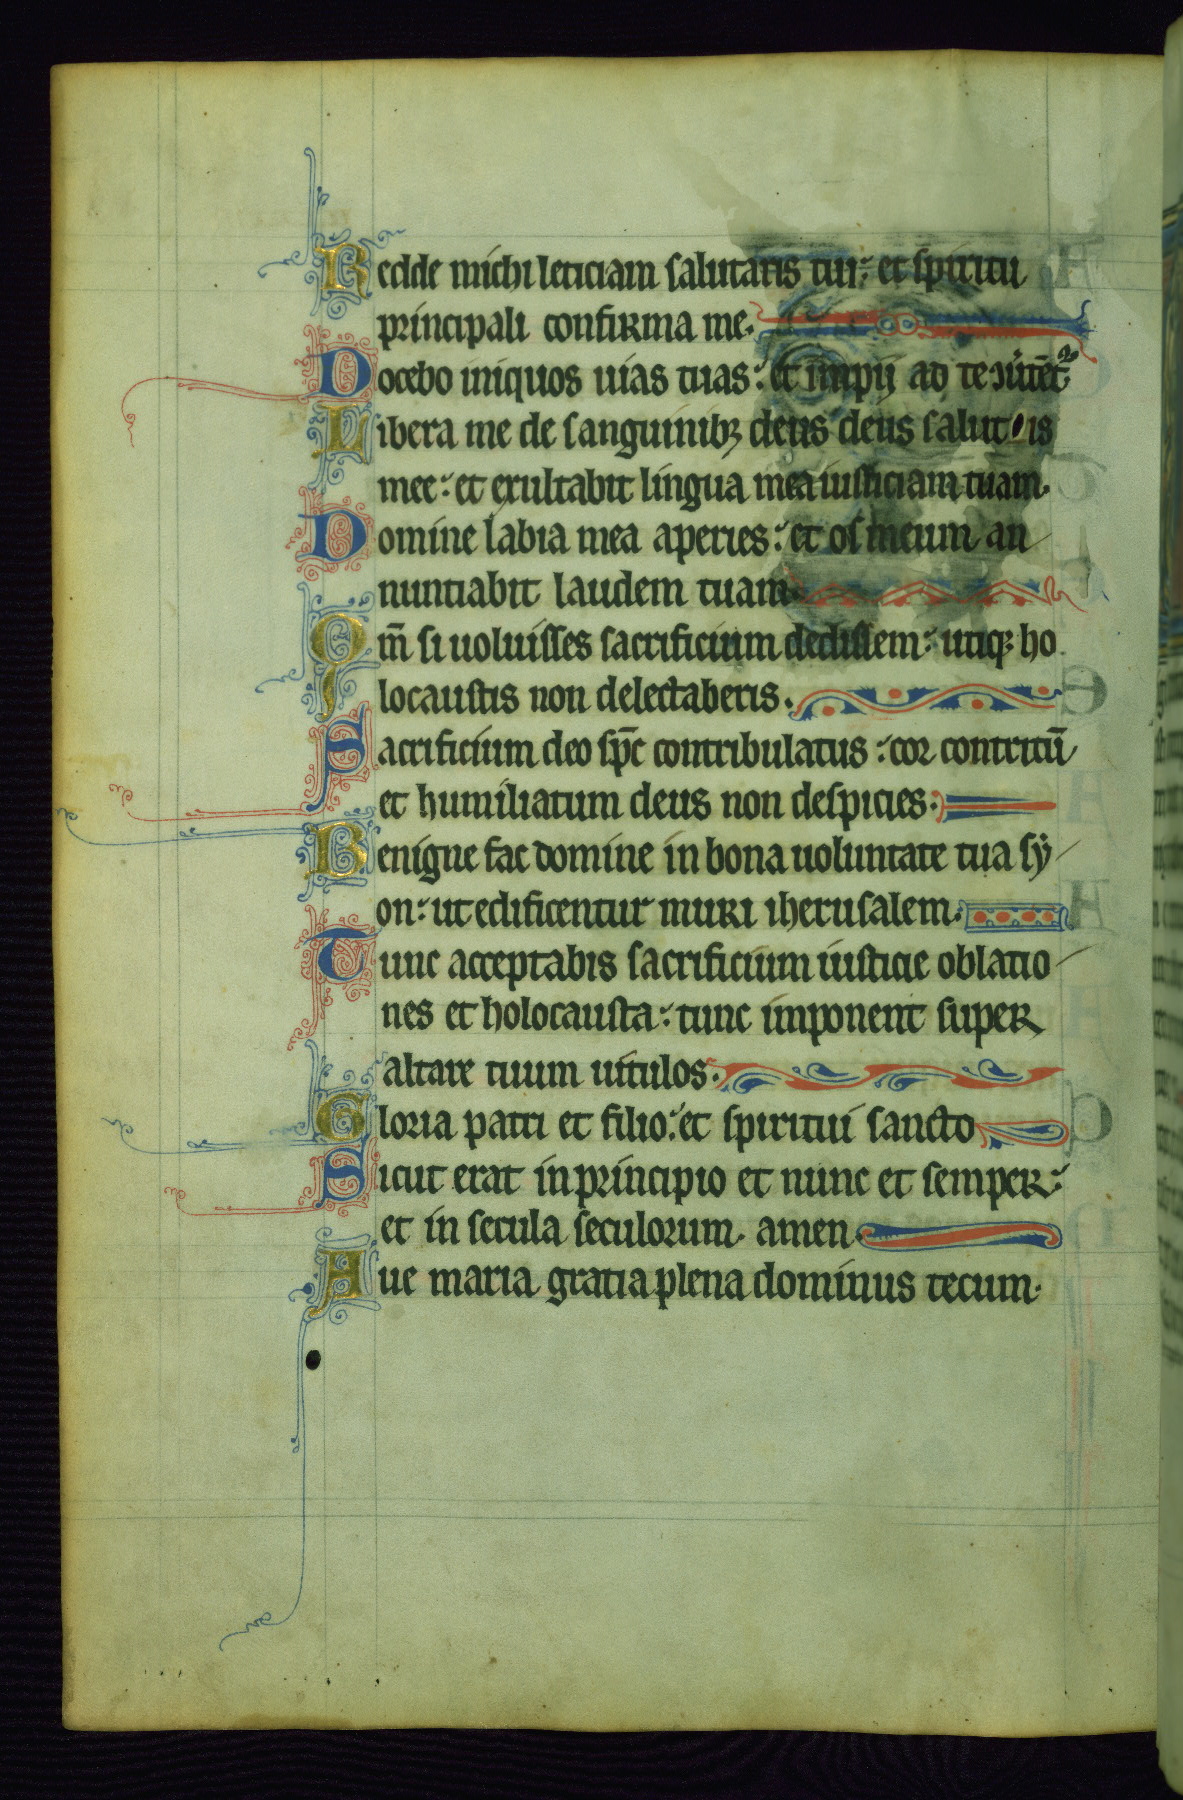 Redde michi leticiam salutaris tui: et spiritu
principali confirma me.
Docebo iniquos uias tuas: et impij ad te ↄu̾tēt᷑
Libera me de sanguinibꝫ deus deus salutis
mee: et exultabit lingua mea iusticiam tuam.
Domine labia mea aperies: et os meum an
nuntiabit laudem tuam
Qm̄ si uoluisses sacrificium dedissem: utiqꝫ ho
locaustis non delectaberis.
Sacrificium deo sp̄c contribulatus: cor contritū
et humiliatum deus non despicies:
Benigne fac domine in bona uoluntate tua sy
on: ut edificentur muri iherusalem.
Tunc acceptabis sacrificium iusticie oblatio
nes et holocausta: tunc imponent super
altare tuum uitulos.
Gloria patri et filio: et spiritui sancto
Sicut erat in principio et nunc et semper:
et in secula seculorum. amen.
Aue maria gratia plena dominus tecum.